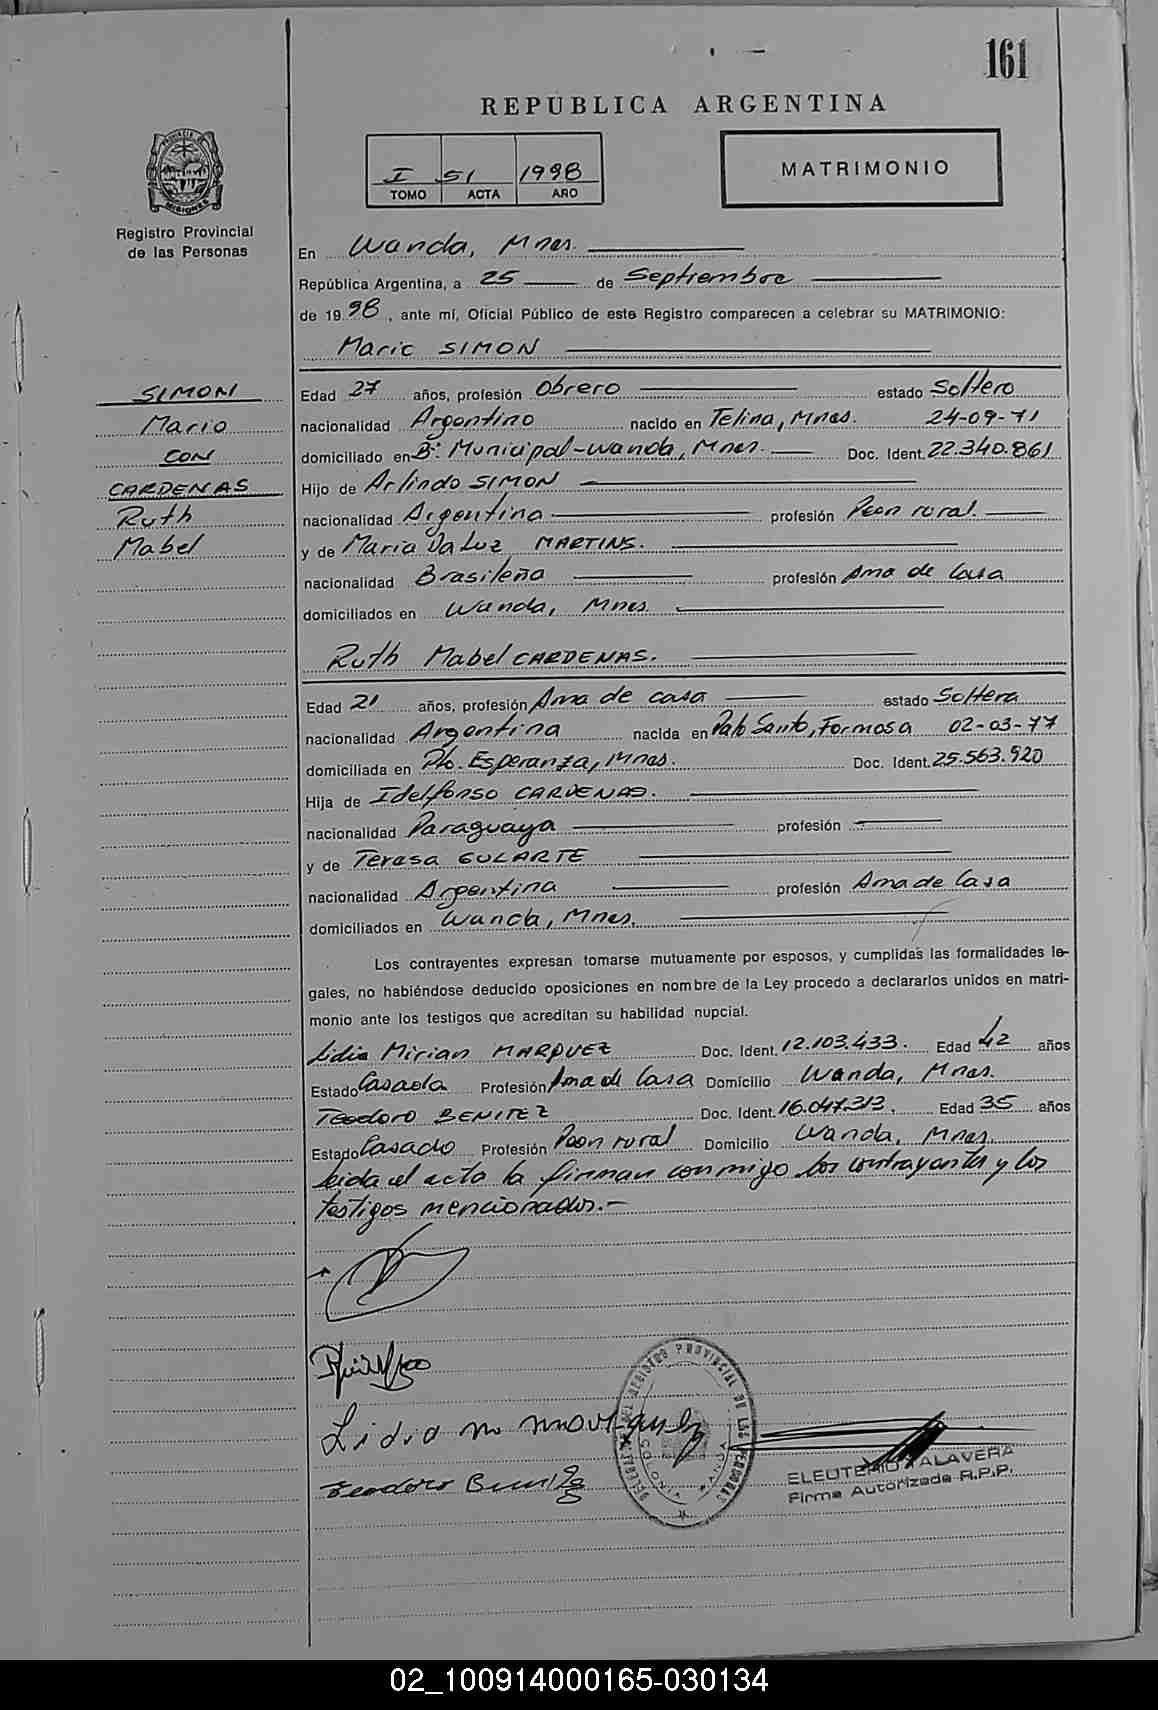 161
REPÚBLICA ARGENTINA
I 51 1998
TOMO ACTA AÑO
MATRIMONIO
PROVINCIA DE
MISIONES
Registro Provincial
de las Personas
En Wanda, Mnes.
República Argentina, a 25 de Septiembre
de 1998, ante mí, Oficial Público de este Registro comparecen a celebrar su MATRIMONIO:
Mario SIMON
SIMON
Mario
CON
CARDENAS
Ruth
Mabel
Edad 27 años, profesión Obrero estado Soltero
nacionalidad Argentino nacido en Mnes. 24-09-71
domiciliado en B: Municipal-Wanda, Mnes. Doc. Ident. 22.340.861
Hijo de Arlindo SIMON
nacionalidad Argentina profesión Peon rural.
y de Maria Da Luz MARTINS.
nacionalidad Brasileña profesión Ama de Casa
domiciliados en Wanda, Mnes.
Ruth Mabel CARDENAS.
Edad 21 años, profesión Ama de casa estado Soltera
nacionalidad Argentina nacida en Palo Santo, Formosa 02-03-77
domiciliada en Pto. Esperanza, Mnes. Doc. Ident. 25.563.920
Hija de Idelfonso CARDENAS.
nacionalidad Paraguaya profesión
y de Teresa GULARTE
nacionalidad Argentina profesión Ama de Casa
domiciliados en Wanda, Mnes.
Los contrayentes expresan tomarse mutuamente por esposos, y cumplidas las formalidades le-
gales, no habiéndose deducido oposiciones en nombre de la Ley procedo a declararlos unidos en matri-
monio ante los testigos que acreditan su habilidad nupcial.
Lidia Mirian MARQUEZ Doc. Ident. 12.103.433. Edad 42 años
Estado Casada Profesión Ama de Casa Domicilio Wanda, Mnes.
Teodoro BENITEZ Doc. Ident. 16.047.313. Edad 35 años
Estado Casado Profesión Peon rural Domicilio Wanda, Mnes.
Leida el acta la firman conmigo los contrayentes y los
testigos mencionados.-
Lidia M Marquez
Teodoro Benitez
REGISTRO PROVINCIAL DE LAS PERSONAS
ELEUTERIO TALAVERA
Firma Autorizada R.P.P.
02_100914000165-030134